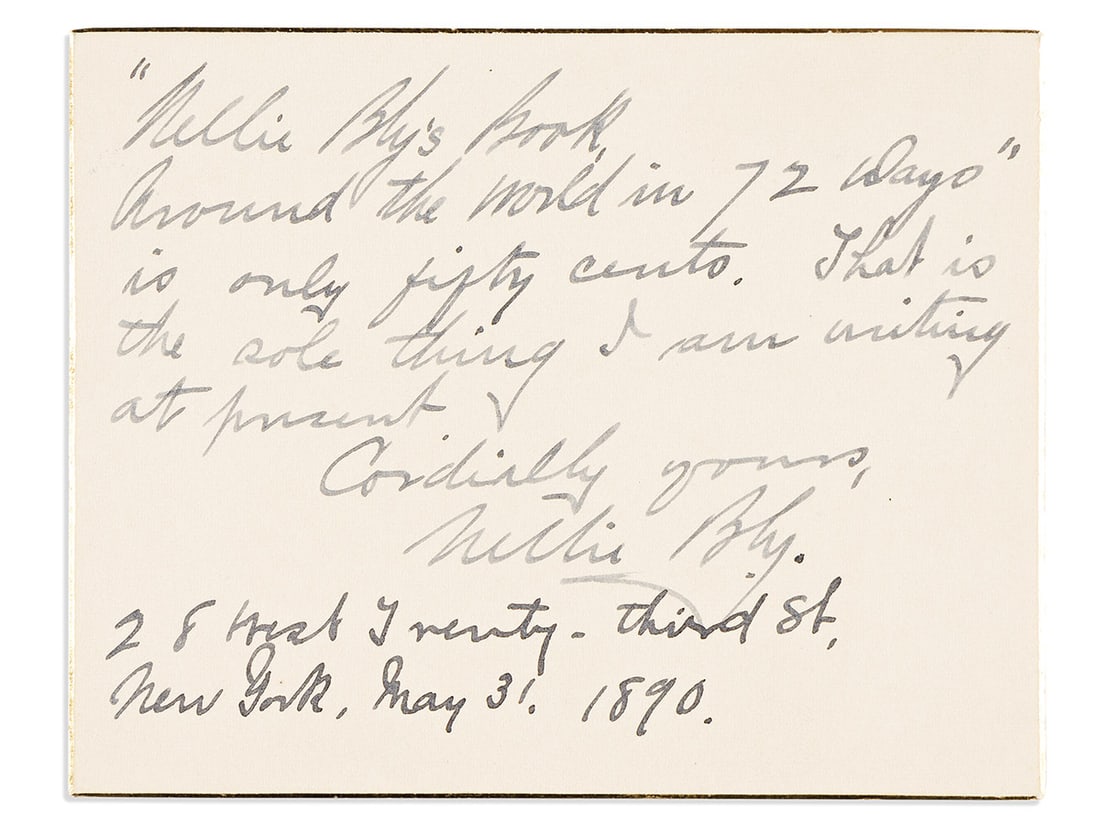 "Nellie Bly's Book,
Around the World in 72 Days"
is only fifty cents. That is
the sole thing I am writing
at present
Cordially yours,
Nellie Bly.
28 West Twenty-third St,
New York, May 31. 1890.